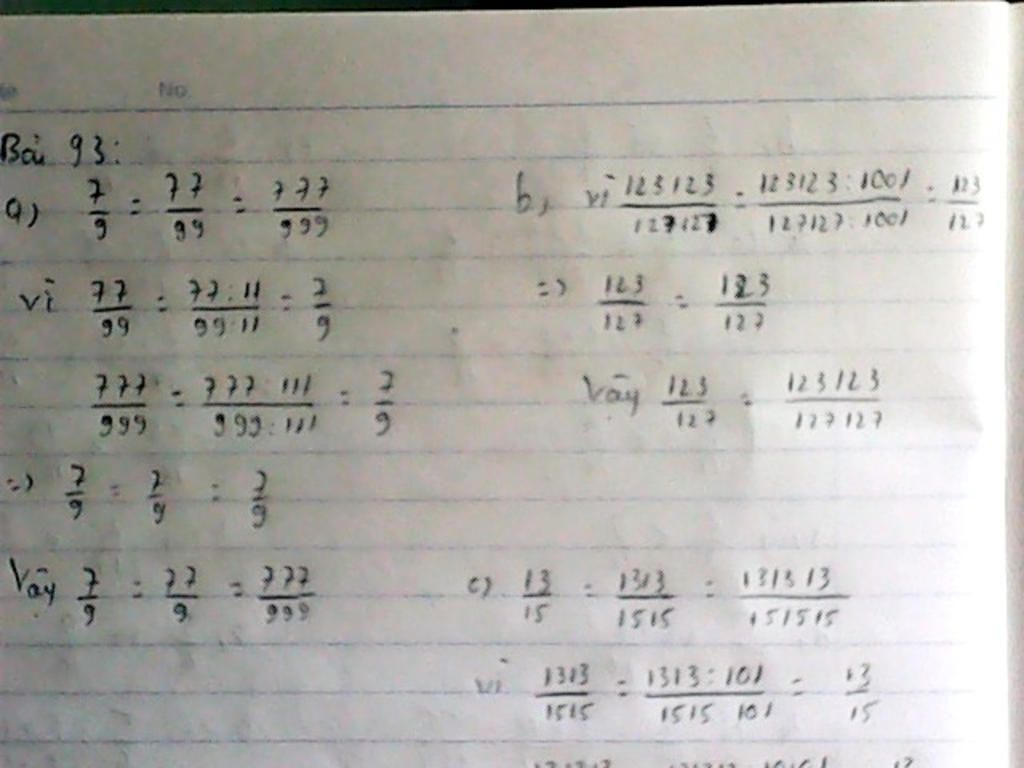 No
Bài 93:
a) 7/9 = 77/99 = 777/999
vì 77/99 = 77:11/99:11 = 7/9
777/999 = 777:111/999:111 = 7/9
=> 7/9 = 7/9 = 7/9
Vậy 7/9 = 77/9 = 777/999
b, vì 123123/127127 = 123123:1001/127127:1001 = 123/127
=> 123/127 = 123/127
Vậy 123/127 = 123123/127127
c) 13/15 = 1313/1515 = 131313/151515
vì 1313/1515 = 1313:101/1515 101 = 13/15